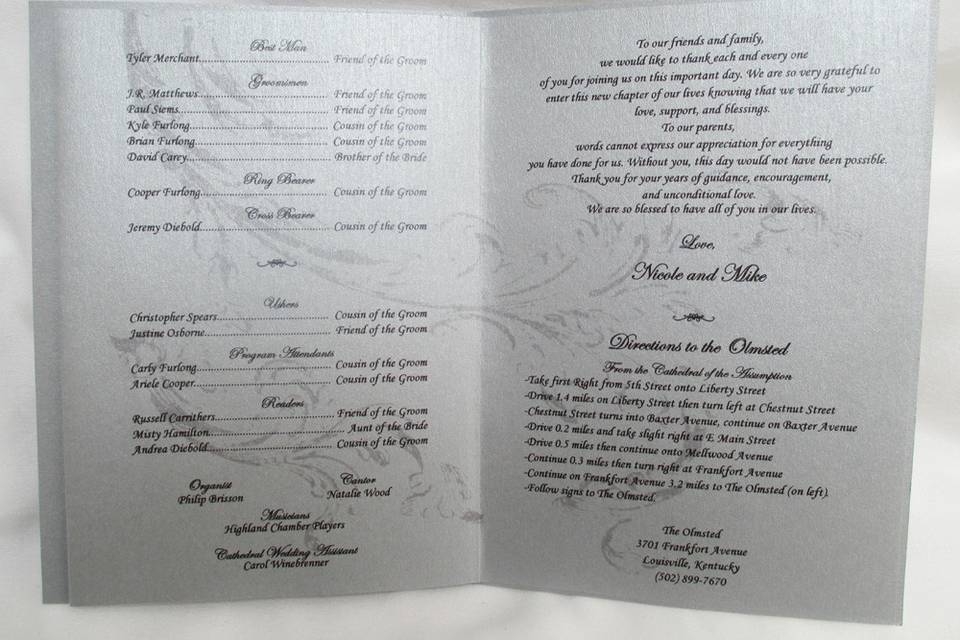 Best Man
Tyler Merchant.......................................... Friend of the Groom
Groomsmen
J.R. Matthews.......................................... Friend of the Groom
Paul Siems.......................................... Friend of the Groom
Kyle Furlong.......................................... Cousin of the Groom
Brian Furlong.......................................... Cousin of the Groom
David Carey.......................................... Brother of the Bride
Ring Bearer
Cooper Furlong.......................................... Cousin of the Groom
Cross Bearer
Jeremy Diebold.......................................... Cousin of the Groom
Ushers
Christopher Spears.................................... Cousin of the Groom
Justine Osborne.......................................... Friend of the Groom
Program Attendants
Carly Furlong.......................................... Cousin of the Groom
Ariele Cooper.......................................... Cousin of the Groom
Readers
Russell Carrithers.................................... Friend of the Groom
Misty Hamilton.......................................... Aunt of the Bride
Andrea Diebold.......................................... Cousin of the Groom
Organist Cantor
Philip Brisson Natalie Wood
Musicians
Highland Chamber Players
Cathedral Wedding Assistant
Carol Winebrenner
To our friends and family,
we would like to thank each and every one
of you for joining us on this important day. We are so very grateful to
enter this new chapter of our lives knowing that we will have your
love, support, and blessings.
To our parents,
words cannot express our appreciation for everything
you have done for us. Without you, this day would not have been possible.
Thank you for your years of guidance, encouragement,
and unconditional love.
We are so blessed to have all of you in our lives.
Love,
Nicole and Mike
Directions to the Olmsted
From the Cathedral of the Assumption
-Take first Right from 5th Street onto Liberty Street
-Drive 1.4 miles on Liberty Street then turn left at Chestnut Street
-Chestnut Street turns into Baxter Avenue, continue on Baxter Avenue
-Drive 0.2 miles and take slight right at E Main Street
-Drive 0.5 miles then continue onto Mellwood Avenue
-Continue 0.3 miles then turn right at Frankfort Avenue
-Continue on Frankfort Avenue 3.2 miles to The Olmsted (on left).
-Follow signs to The Olmsted.
The Olmsted
3701 Frankfort Avenue
Louisville, Kentucky
(502) 899-7670